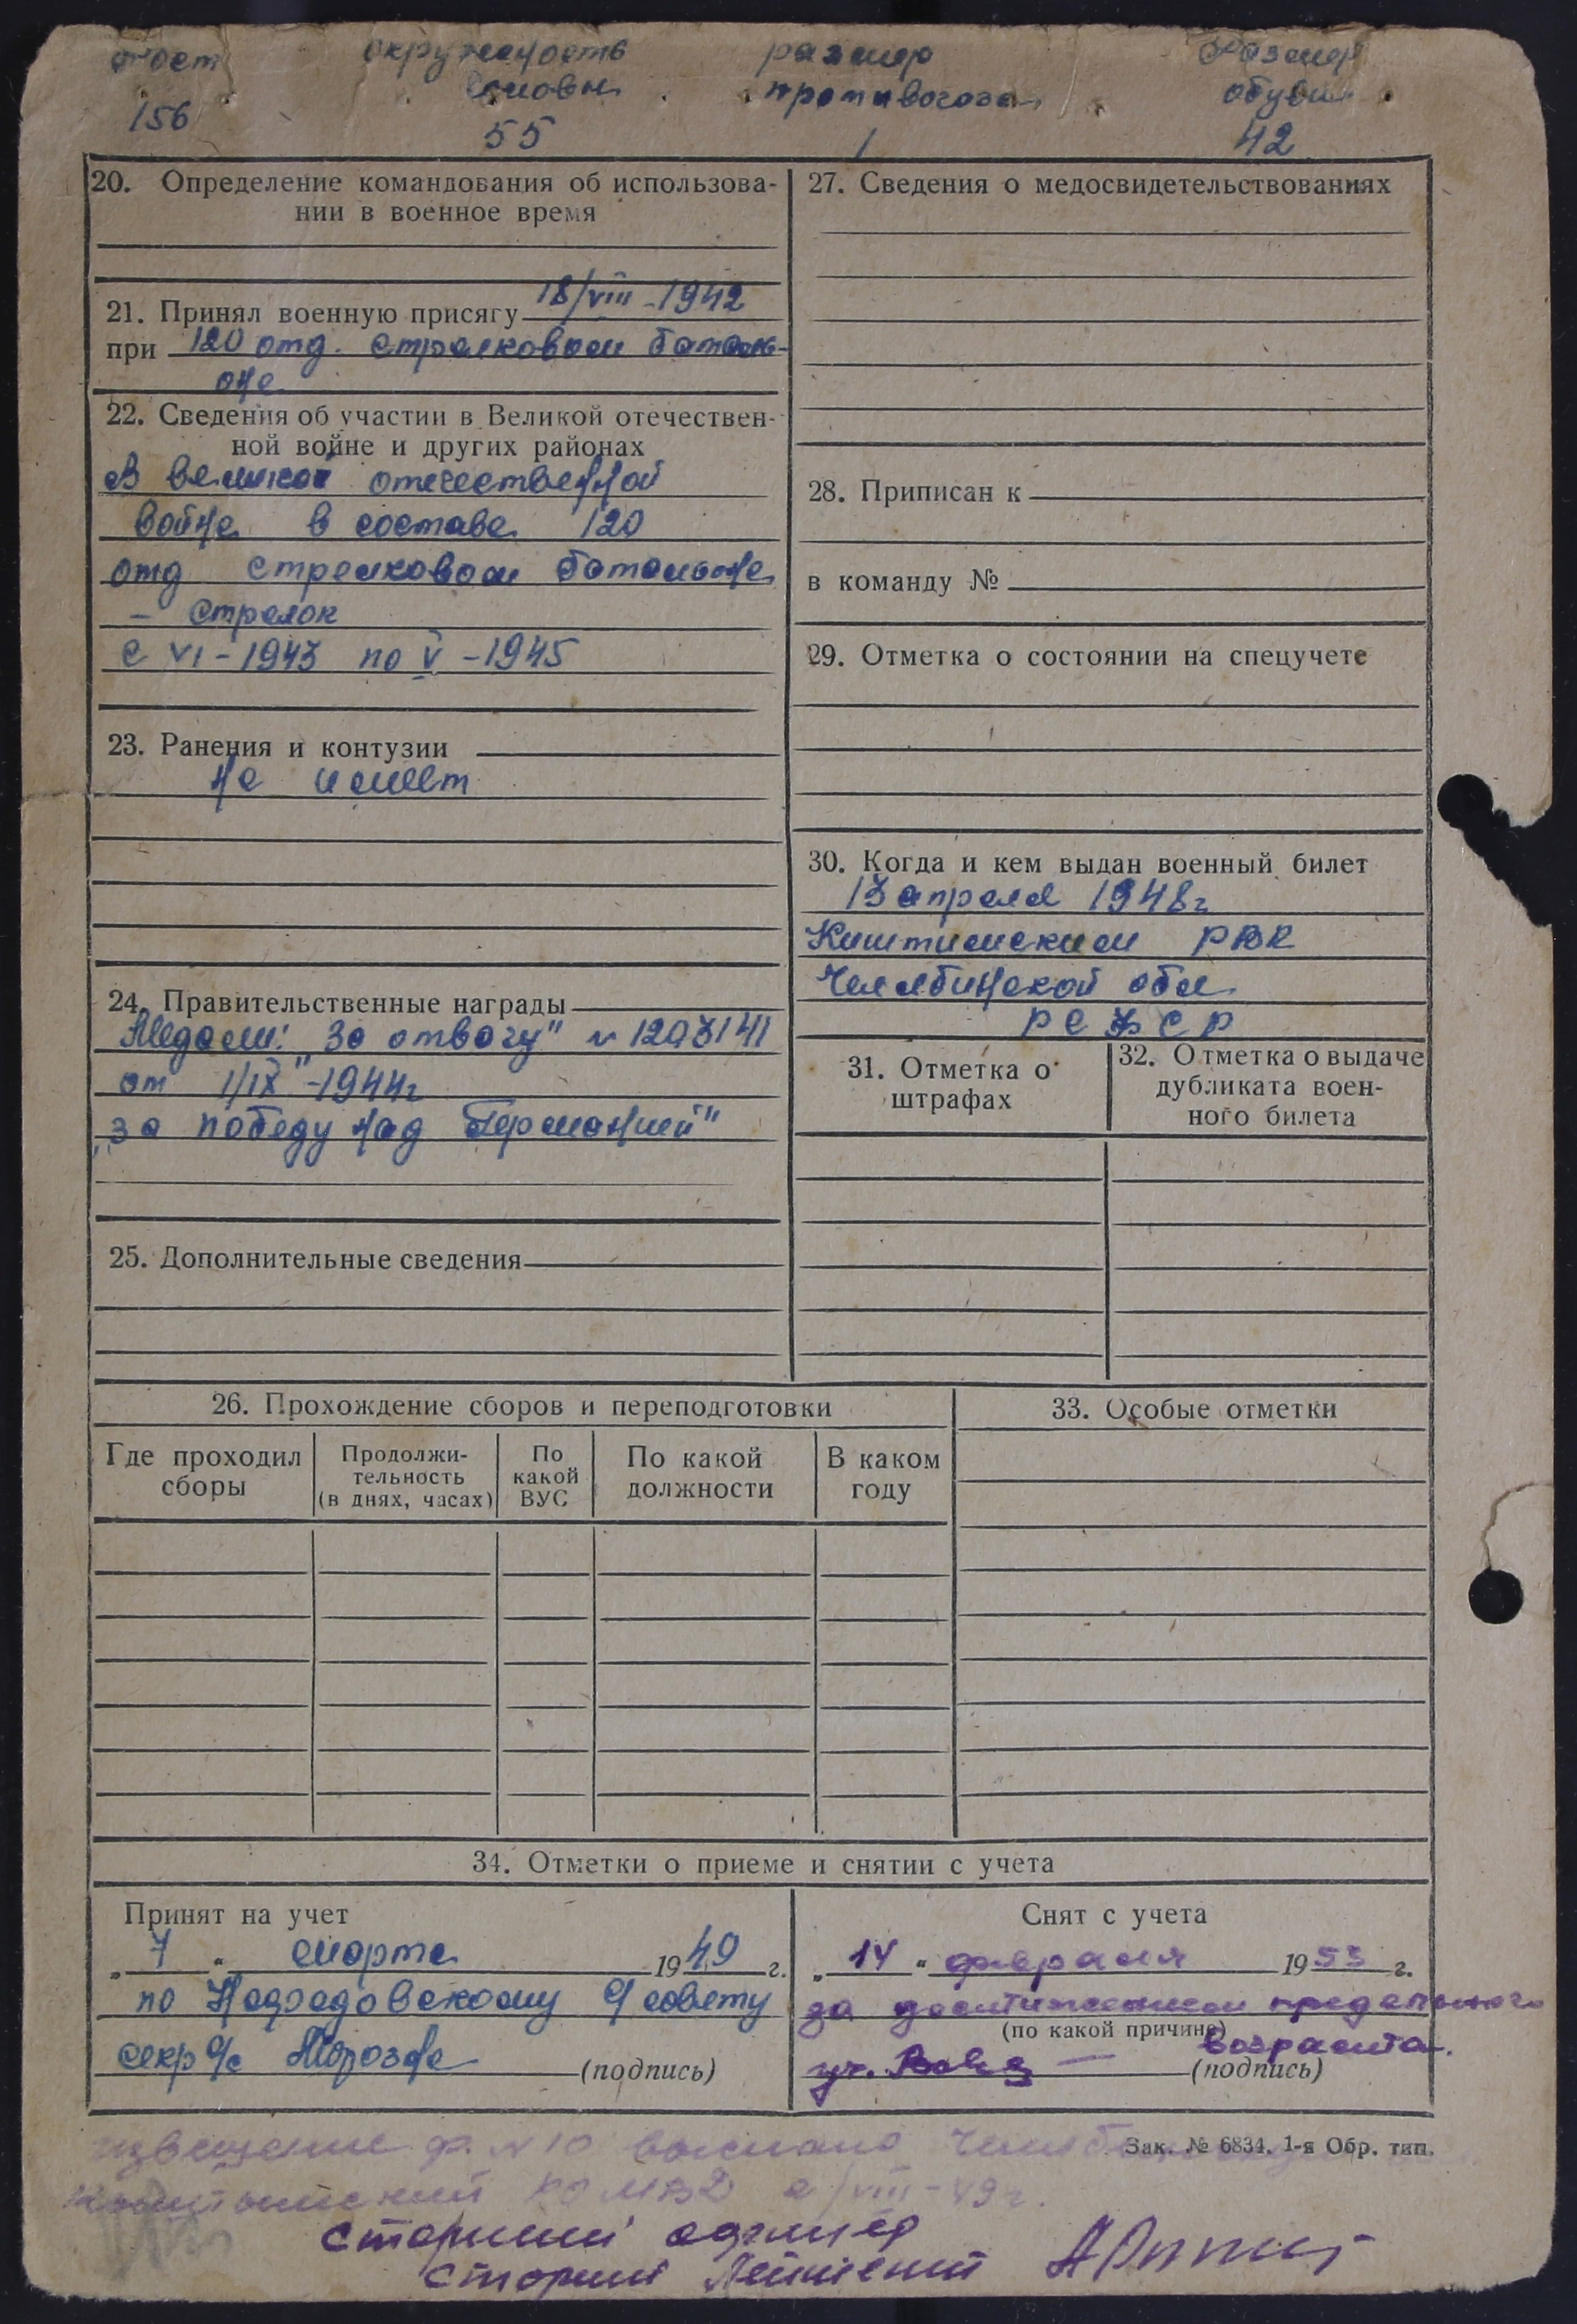 рост окружность размер размер
головы противогаза обуви
156 55 1 42
20. Определение командования об использова-
нии в военное время
21. Принял военную присягу 18/VIII-1942
при 120 отд. стрелковом баталь-
оне
22. Сведения об участии в Великой отечествен-
ной войне и других районах
В великой отечественной
войне в составе 120
отд стрелковом батальоне
- стрелок
с VI-1943 по V-1945
23. Ранения и контузии
не имеет
24. Правительственные награды
Медали: "За отвагу" № 1203141
от 1/IX-1944г
"за победу над Германией"
25. Дополнительные сведения
27. Сведения о медосвидетельствованиях
28. Приписан к
в команду №
29. Отметка о состоянии на спецучете
30. Когда и кем выдан военный билет
13 апреля 1948г
Киштимским РВК
Челябинской обл.
РСФСР
31. Отметка о
штрафах
32. Отметка о выдаче
дубликата воен-
ного билета
26. Прохождение сборов и переподготовки
Где проходил
сборы
Продолжи-
тельность
(в днях, часах)
По
какой
ВУС
По какой
должности
В каком
году
33. Особые отметки
34. Отметки о приеме и снятии с учета
Принят на учет
„7“ марта 1949 г.
по с/совету
секр с/с (подпись)
Снят с учета
„14“ февраля 1953 г.
за достижением предельного
(по какой причине)
возраста.
(подпись)
Зак. № 6834. 1-я Обр. тип.
извещение ф. №10 выслано
РО МВД 2/VIII-49г.
Старший офицер
Старший Лейтенант